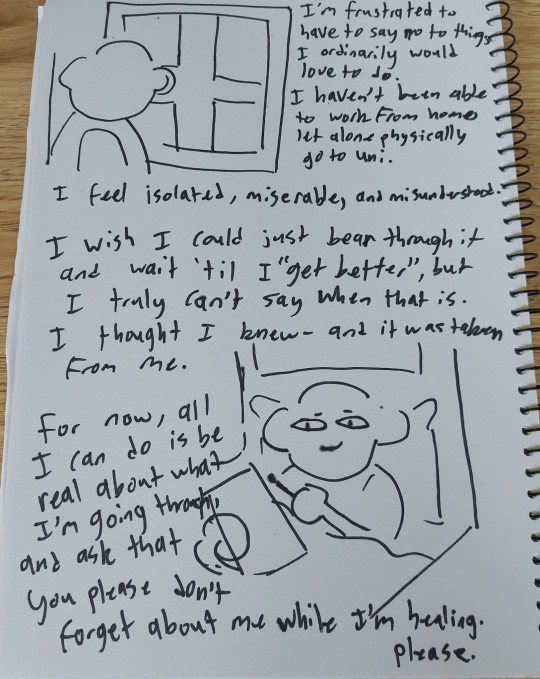 I'm frustrated to
have to say no to things
I ordinarily would
love to do.
I haven't been able
to work from home
let alone physically
go to uni.
I feel isolated, miserable, and misunderstood.
I wish I could just bear through it
and wait 'til I "get better", but
I truly can't say when that is.
I thought I knew - and it was taken
from me.
For now, all
I can do is be
real about what
I'm going through,
and ask that
you please don't
forget about me while I'm healing.
please.